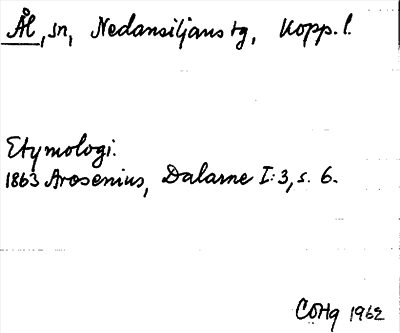 Ål, sn, Nedansiljans tg, Kopp. l.
Etymologi.
1863 Arosenius, Dalarne I:3, s. 6.
COHg 1962